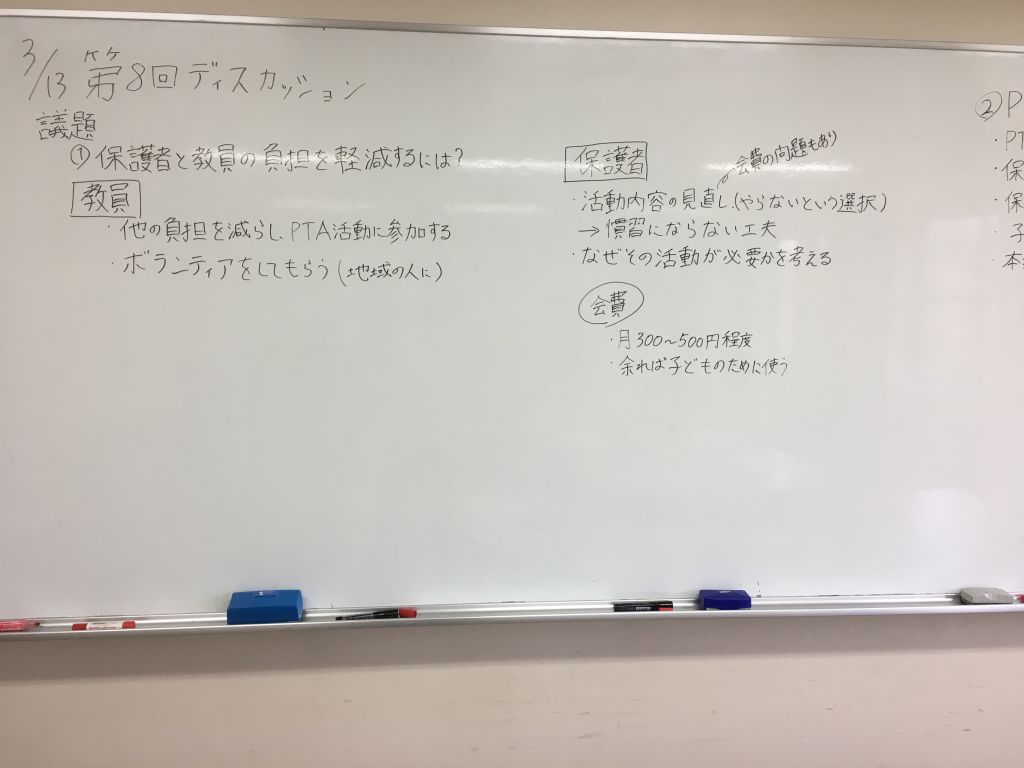 3/13 第8回ディスカッション
議題
①保護者と教員の負担を軽減するには?
教員
・他の負担を減らし、PTA活動に参加する
・ボランティアをしてもらう(地域の人に)
保護者
会費の問題もあり
・活動内容の見直し(やらないという選択)
→慣習にならない工夫
・なぜその活動が必要かを考える
会費
・月300~500円程度
・余れば子どものために使う
②P
・PT
・保
・保
・子
・本